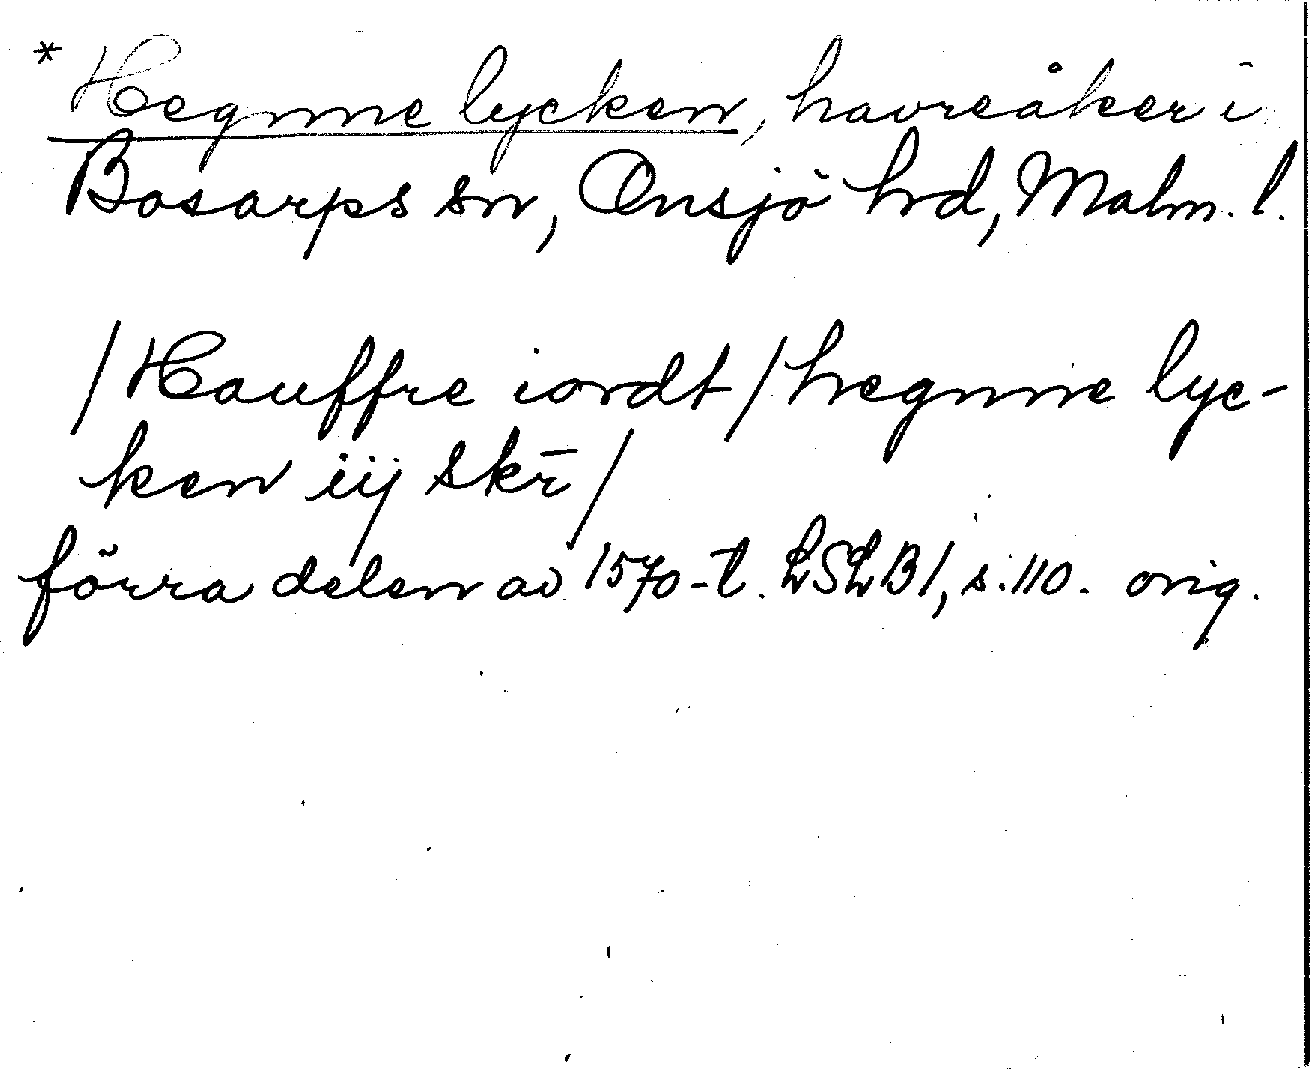 * Hegnne lycken, havreåker i
Bosarps sn, Onsjö hrd, Malm. l.
/Hauffre iordt/hegnne lyc-
ken iij skr̄/
förra delen av 1570-t. LSLB1, s. 110. orig.